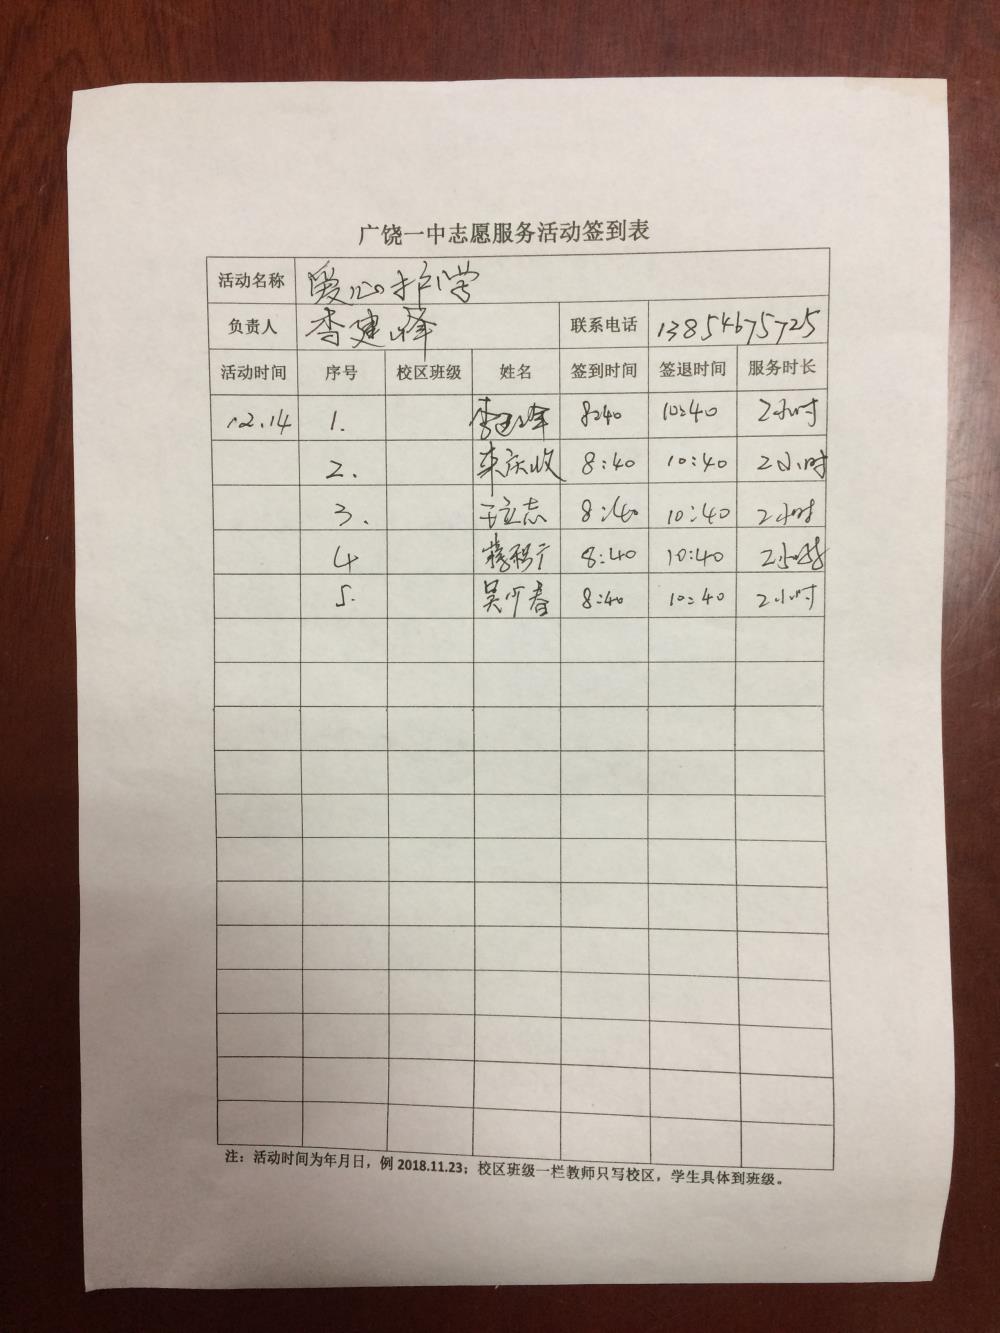 广饶一中志愿服务活动签到表
活动名称 爱心护学
负责人 李建峰 联系电话 13854675725
活动时间 序号 校区班级 姓名 签到时间 签退时间 服务时长
12.14 1. 李建峰 8:40 10:40 2小时
2. 8:40 10:40 2小时
3. 于立志 8:40 10:40 2小时
4 8:40 10:40 2小时
5. 8:40 10:40 2小时
注：活动时间为年月日，例 2018.11.23；校区班级一栏教师只写校区，学生具体到班级。